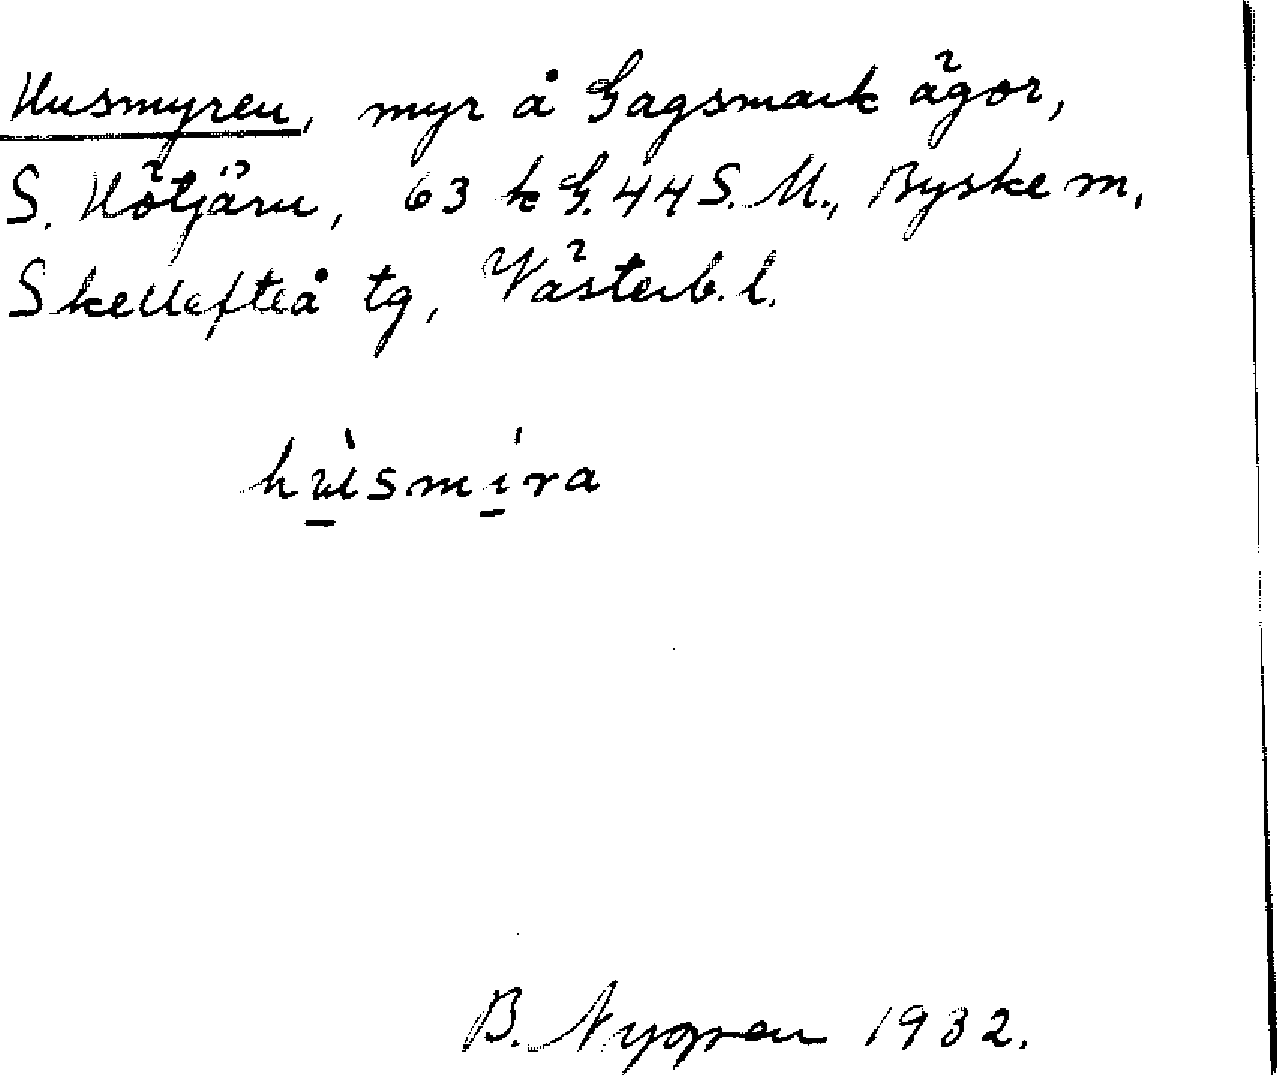 Husmyren, myr å Gagsmark ägor,
S. Hötjärn, 63 k G. 44 S. M., Byske m.
Skellefteå tg, Västerb. l.
hùsmíra
B. Nygren 1932.